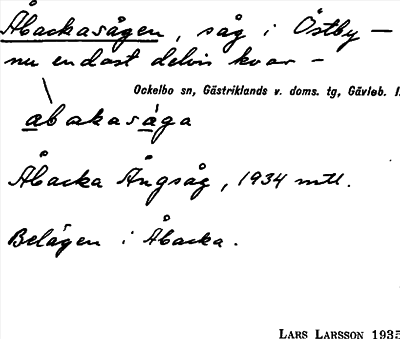 Åbackasågen, såg i Östby —
nu endast delvis kvar –
Ockelbo sn, Gästriklands v. doms. tg, Gävleb. l.
abakasåga
Åbacka Ångsåg, 1934 mtl.
Belägen i Åbacka.
LARS LARSSON 1935